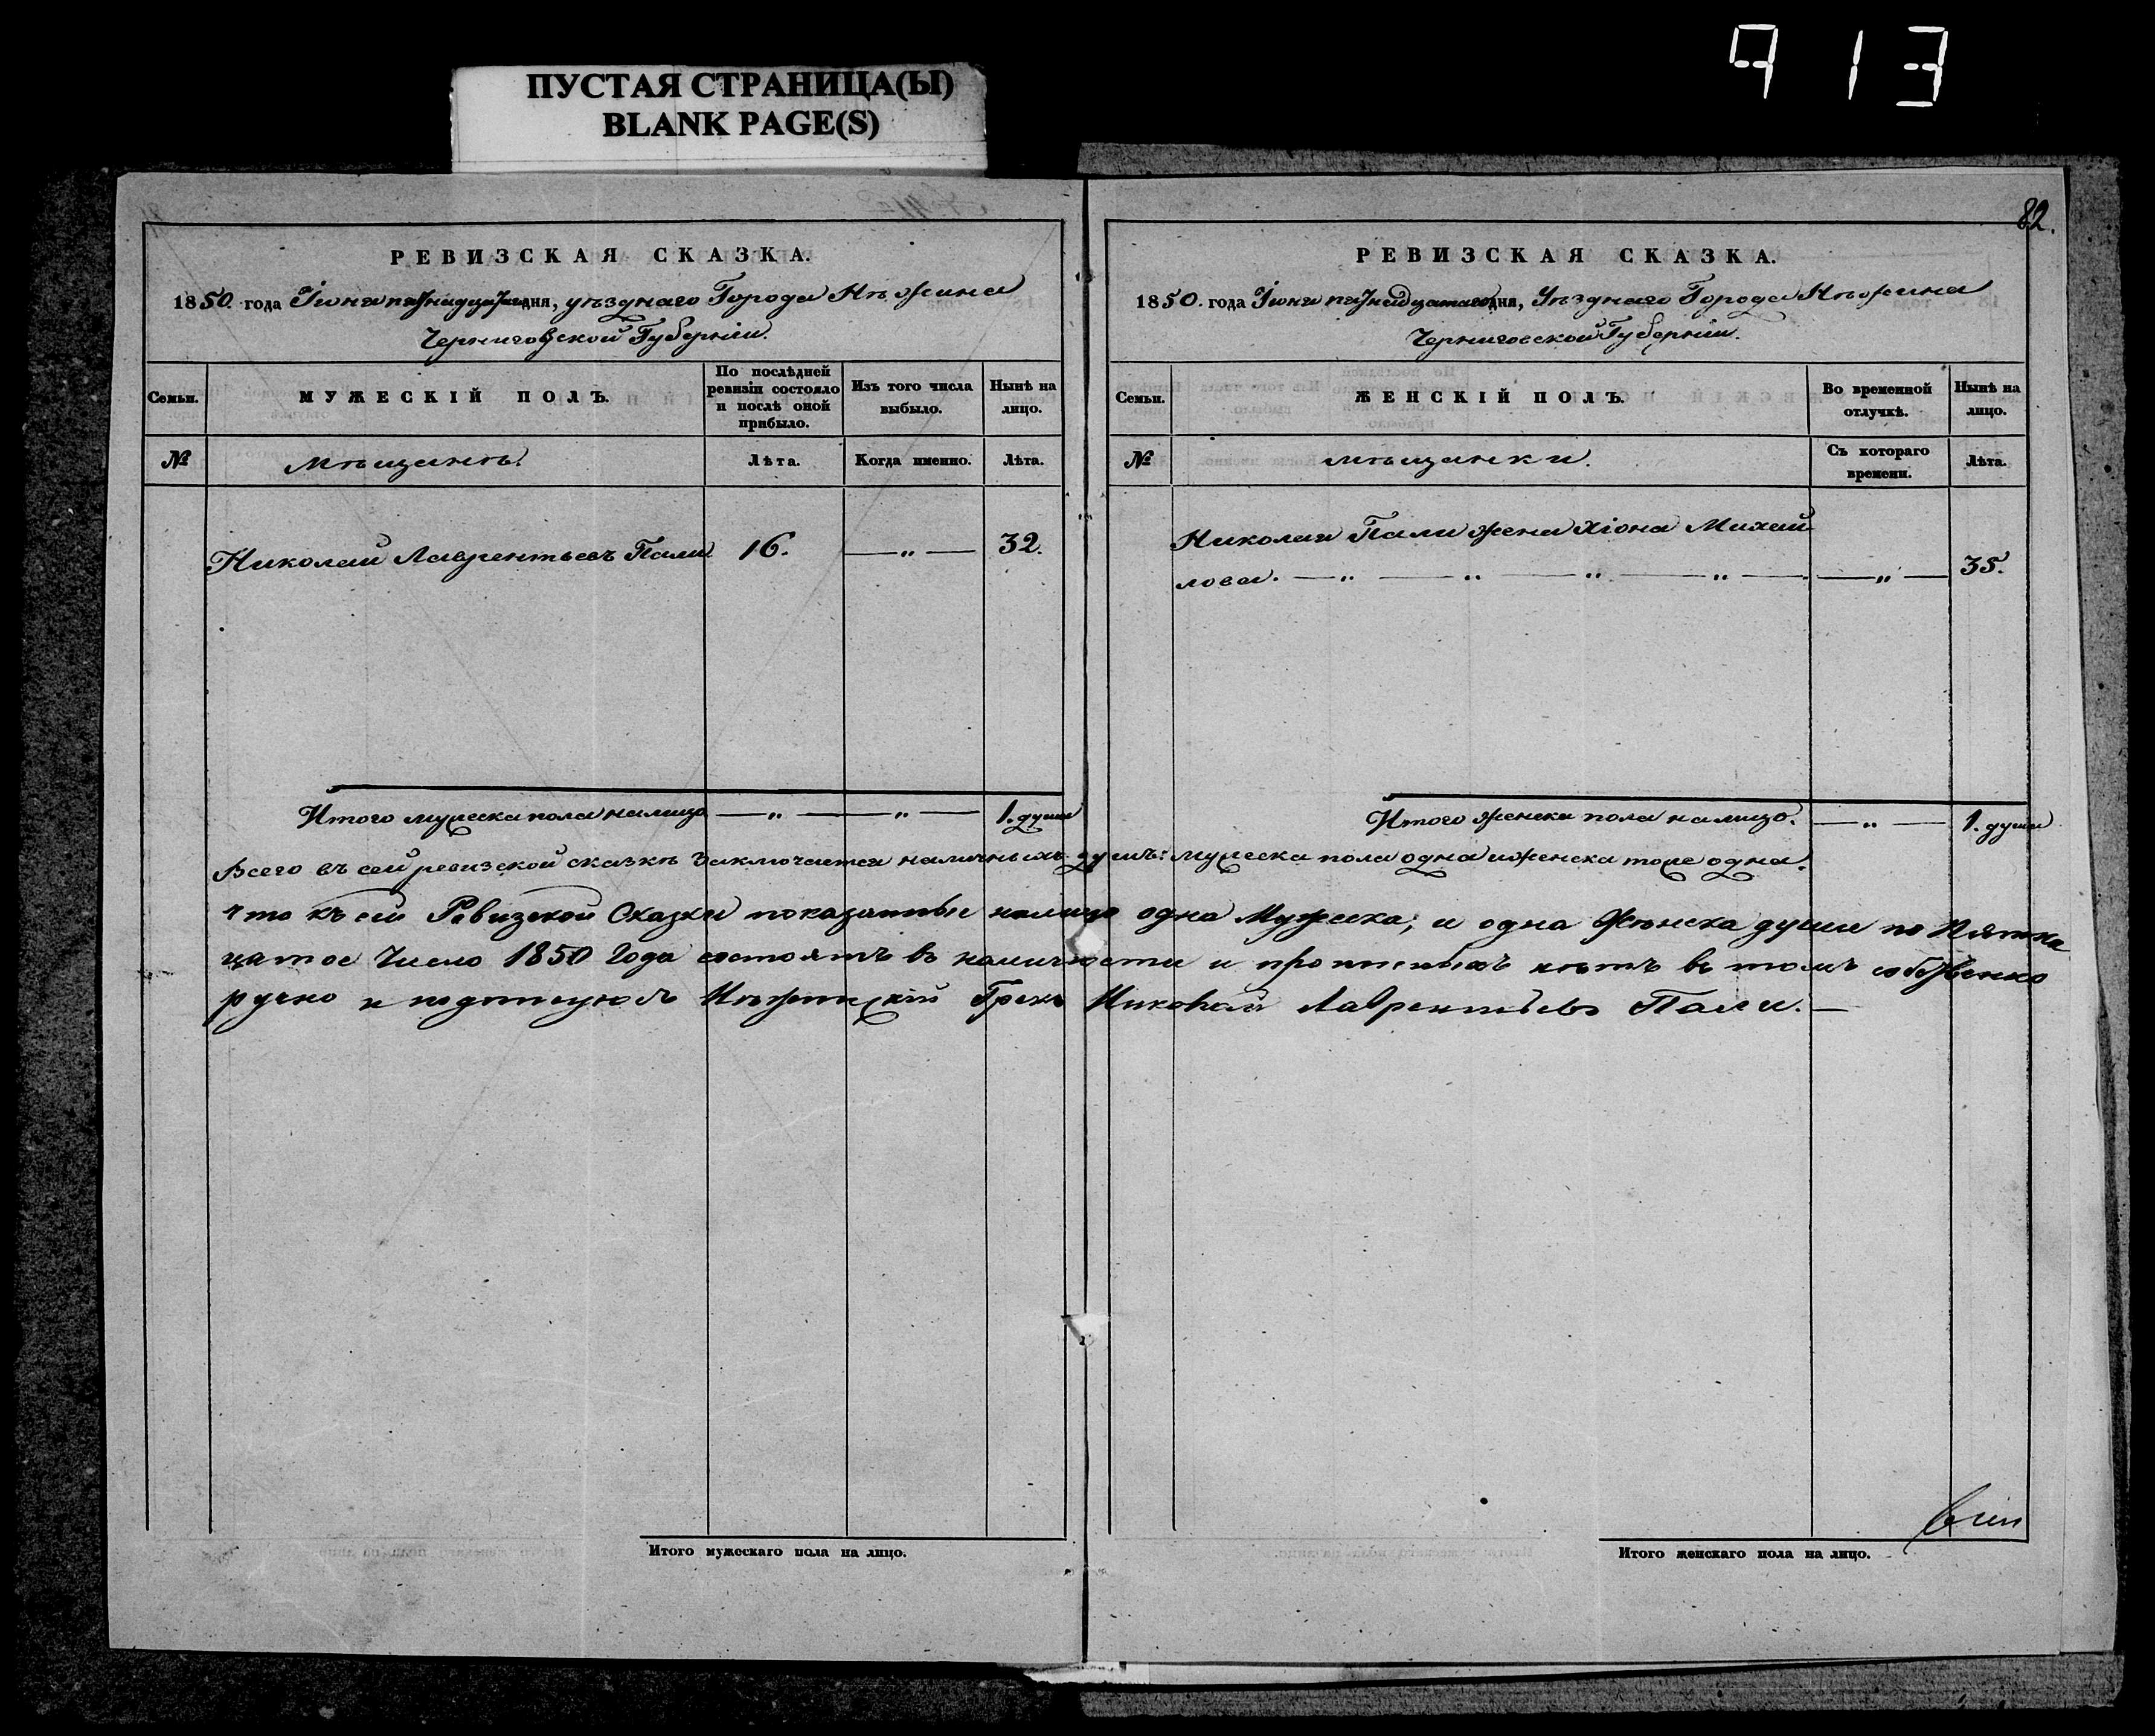 ПУСТАЯ СТРАНИЦА(Ы)
BLANK PAGE(S)
913
РЕВИЗСКАЯ СКАЗКА.
1850. года Іюня пятнадцатаго дня, уѣзднаго Города Нѣжина
Черниговской Губерніи.
Семьи.
МУЖЕСКІЙ ПОЛЪ.
По послѣдней
ревизіи состояло
и послѣ оной
прибыло.
Изъ того числа
выбыло.
Нынѣ на
лицо.
№
Мѣщанѣ.
Лѣта.
Когда именно.
Лѣта.
Николай Лаврентьевъ Пали 16. — „ — 32.
Итого мужеска пола налицо — „ — „ — 1. душа
82.
РЕВИЗСКАЯ СКАЗКА.
1850. года Іюня пятнадцатаго дня, Уѣзднаго Города Нѣжина
Черниговской Губерніи.
Семьи.
ЖЕНСКІЙ ПОЛЪ.
Во временной
отлучкѣ.
Нынѣ на
лицо.
№
мѣщанки.
Съ котораго
времени.
Лѣта.
Николая Пали жена Хіона Михай
лова. — „ — „ — „ — „ — — „ — 35.
Итого женска пола налицо. — „ — 1. душа
Всего въ сей ревизской сказкѣ заключается наличныхъ душъ: мужеска пола одна и женска тоже одна.
что къ сей Ревизской Сказки показанные налицо одна Мужеска, и одна Женска души по Пятна
цатое Число 1850 Года состоятъ въ наличности и нѣтъ въ томъ собственно
ручно и подписуюсь Нѣжинскій Грекъ Николай Лаврентьевъ Пали. —
Итого мужескаго пола на лицо.
Итого женскаго пола на лицо.